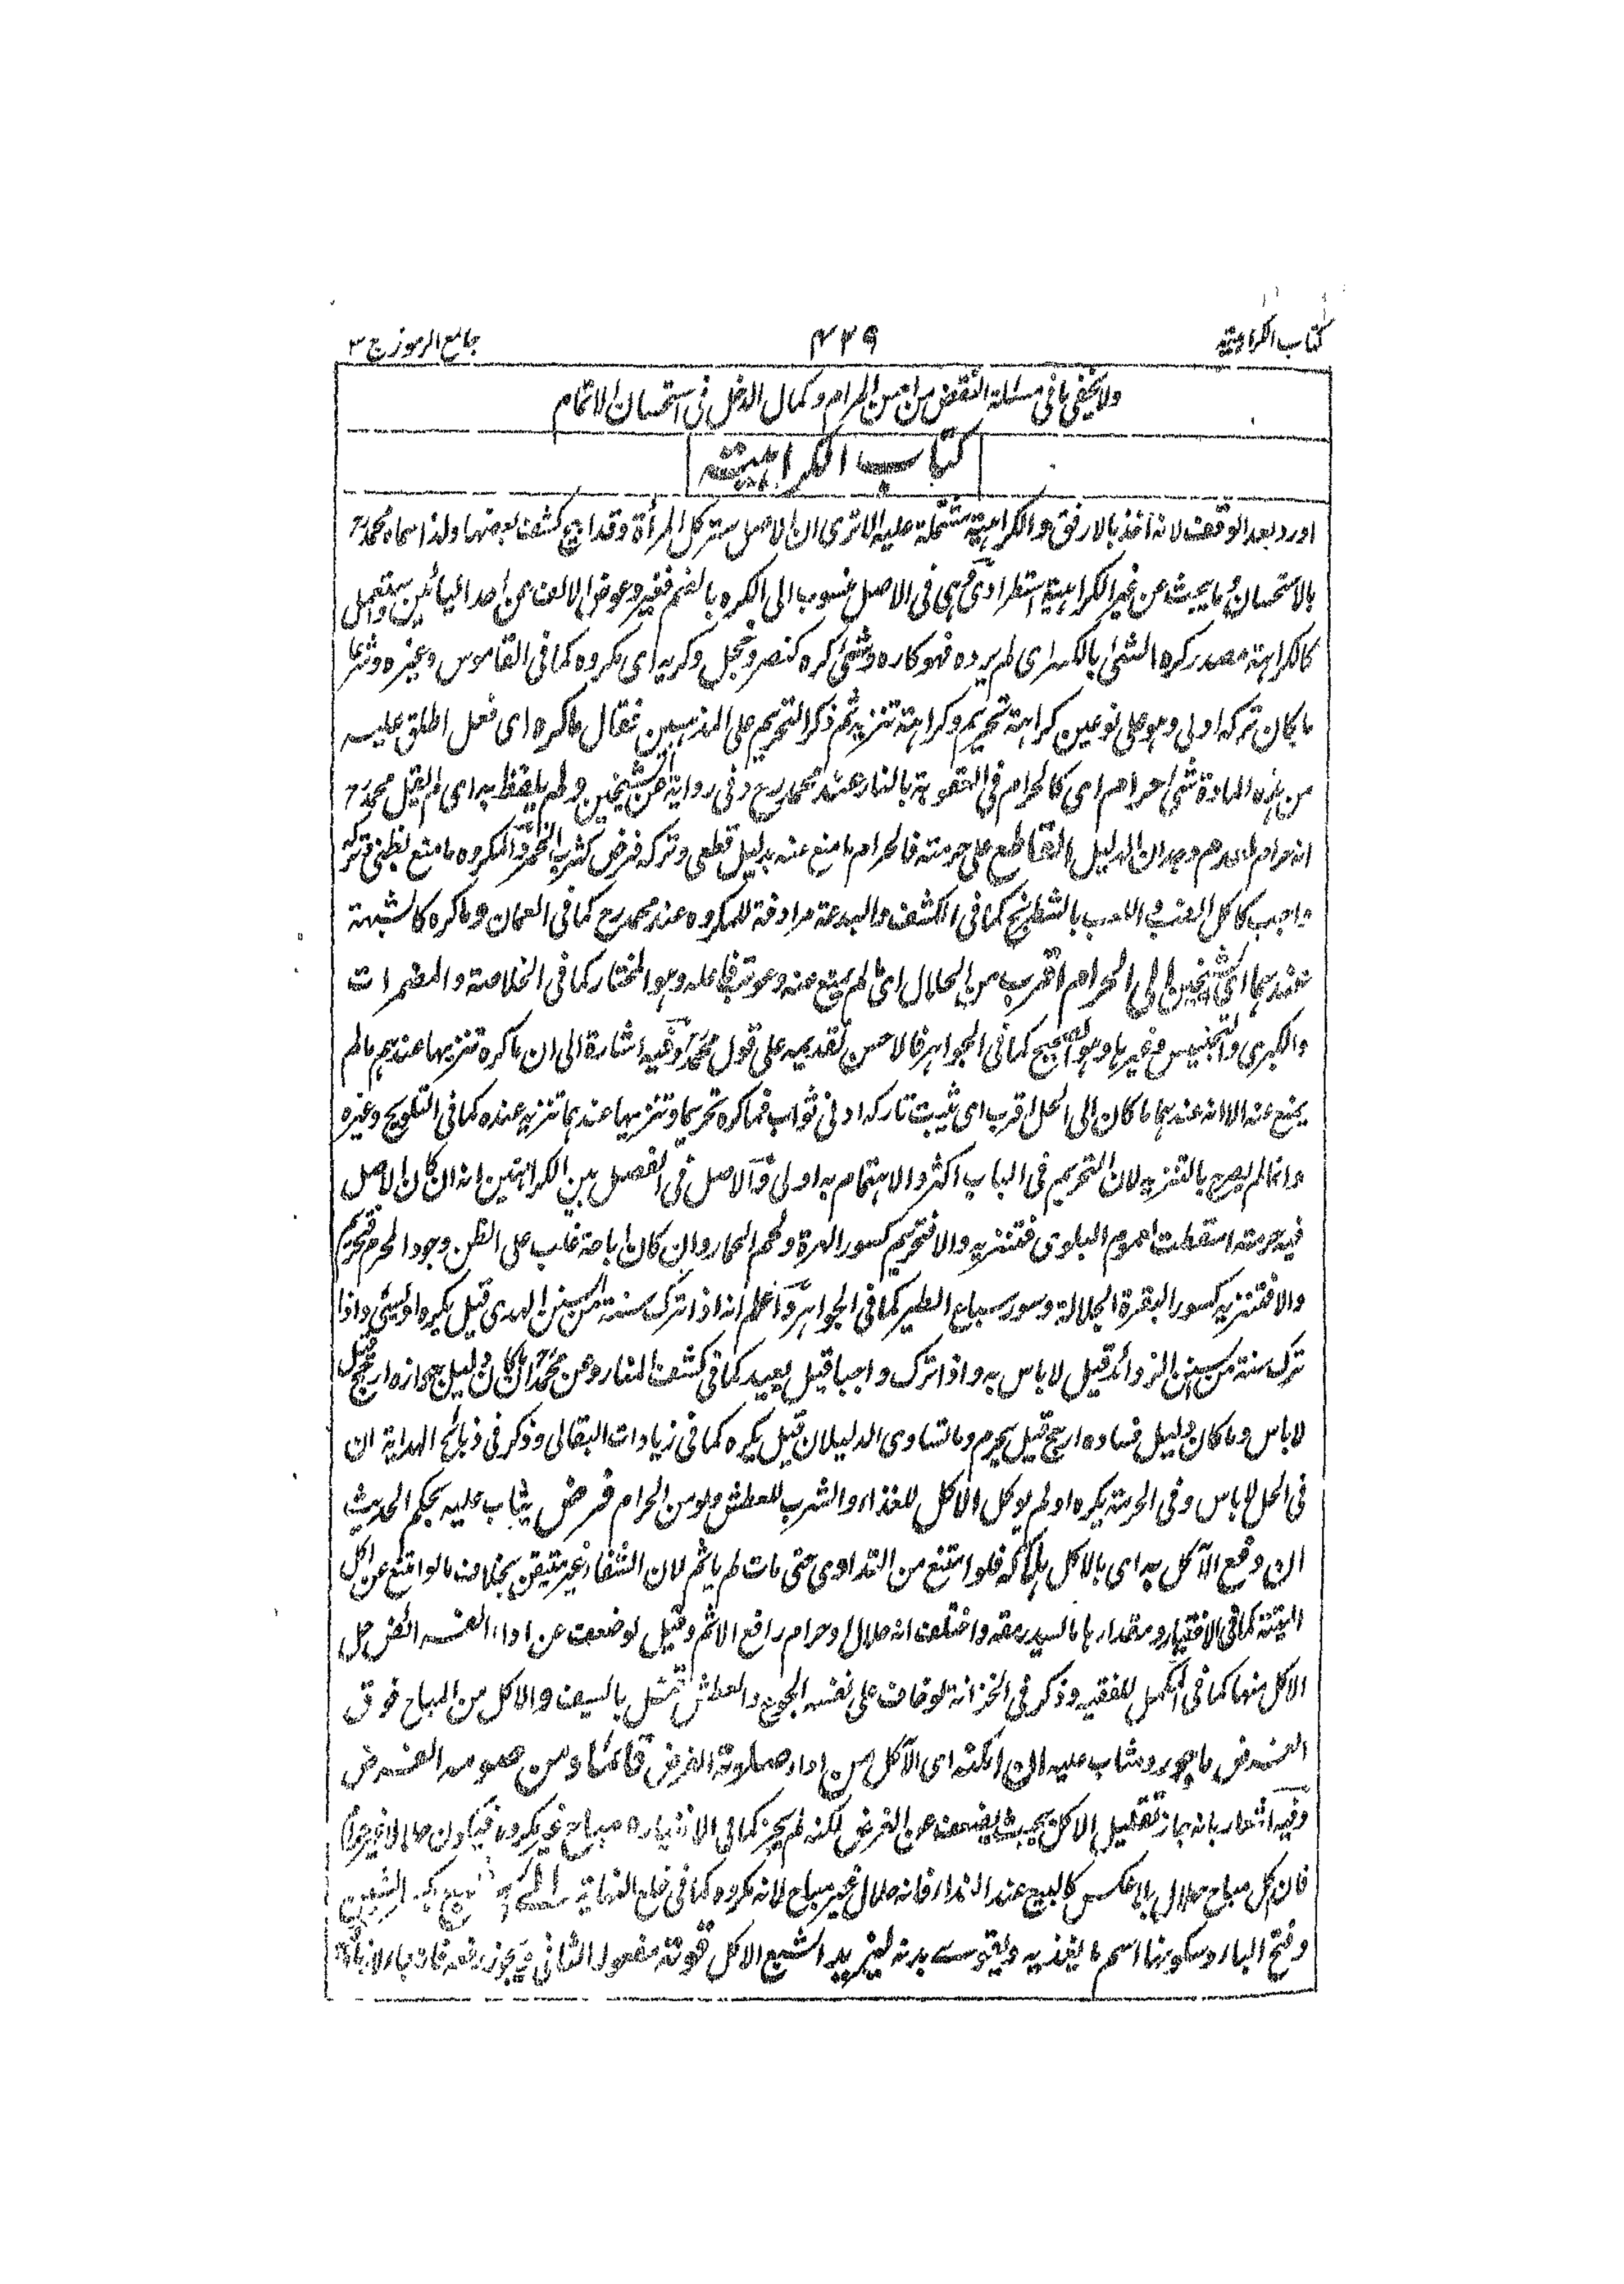 كتاب الكراهية ٤٣٩ جامع الرموز ج ٣
ولا يخفى ما فى مسئلة النقض من حسن المرام وكمال الدخل فى استحسان الاتمام
كتاب الكراهية
اورد بعد الوقف لانه اخذ بالارفق والكراهية مشتملة عليه الا ترى ان الاصل ستر كل المرأة وقد ابيح كشف بعضها ولذا سماه محمد رح
بالاستحسان وما يبحث عن غير الكراهية استطرادى وهى فى الاصل منسوب الى الكره بالضم فغير وعوض الالف عن احد اليائين ويستعمل
كالكراهة مصدر كره الشئ بالكسر اى لم يرده فهو كاره وشئ كره كنصر وخجل وكريه اى مكروه كما فى القاموس وغيره وشرعا
ما كان تركه اولى وهو على نوعين كراهة تحريم وكراهة تنزيه ثم ذكر التحريم على المذهبين فقال ما كره اى فعل اطلق عليه
من هذه المادة شئ حرام اى كالحرام فى العقوبة بالنار عند محمد رح وفى رواية عن الشيخين ولم يلفظ به اى لم يقل محمد رح
انه حرام لعدم وجدان الدليل القاطع على حرمته فالحرام ما منع عنه بدليل قطعى وتركه فرض كشرب الخمر والمكروه ما منع بظنى وتركه
واجب كاكل الضب و اللعب بالشطرنج كما فى الكشف والبدعة مرادفة للمكروه عند محمد رح كما فى العمان وما كره كالشبهة
عندهما اى الشيخين الى الحرام اقرب من الحلال اى لم يمنع عنه وعوتب فاعله وهو المختار كما فى الخلاصة والمضمرات
والكبرى والتجنيس وغيرها وهو الصحيح كما فى الجواهر فالاحسن تقديمه على قول محمد رح وفيه اشارة الى ان ما كره تنزيها عندهم ما لم
يمنع عنه الا انه عندهما ما كان الى الحل اقرب اى يثبت تاركه ادنى ثواب فما كره تحريما وتنزيها عندهما تنزيه عنده كما فى التلويح وغيره
وانما لم يصرح بالتنزيه لان التحريم فى الباب اكثر والاهتمام به اولى والاصل فى الفصل بين الكراهتين انه ان كان الاصل
فيه حرمته اسقطت لعموم البلوى فتنزيه والا فتحريم كسور الهرة ولحم الحمار وان كان اباحة غلب على الظن وجود المحرم فتحريم
والا فتنزيه كسور البقرة الجلالة وسور سباع الطير كما فى الجواهر واعلم انه اذا ترك سنة من سنن الهدى قيل يكره او يسئ واذا
ترك سنة من سنن الزوائد قيل لا باس به واذا ترك واجبا قيل يعيد كما فى كشف المنار وعن محمد رح ان ما كان دليل جوازه ارجح قيل
لا باس وما كان دليل فساده ارجح قيل يحرم وما تساوى الدليلان قيل يكره كما فى زيادات البقالى وذكر فى ذبائح الهداية ان
فى الحل لا باس وفى الحرمة يكره او لم يوكل الاكل للغذاء والشرب للعطش ولو من الحرام فرض يثاب عليه بحكم الحديث
ان دفع الآكل به اى بالاكل هلاكه فلو امتنع من التداوى حتى مات لم ياثم لان الشفاء غير متيقن بخلاف ما لو امتنع عن اكل
الميتة كما فى الاختيار ومقدارها ما يسد رمقه واختلف انه حلال او حرام رافع الاثم وقيل لو ضعف عن اداء الفرائض حل
الاكل منها كما فى المكمل للفقيه وذكر فى الخزانة لو خاف على نفسه الجوع والعطش قتل بالسيف والاكل من المباح فوق
الفرض ماجور ومثاب عليه ان امكنه اى الآكل من اداء صلاته الفرض قائما ومن صومه الفرض
وفيه اشعار بانه جاز تقليل الاكل بحيث يضعف عن الفرض لكنه لم يجز كما فى الاختيار ومباح غير مكروه فيكون حلالا
فان كل مباح حلال بلا عكس كالبيع عند النداء فانه حلال غير مباح لانه مكروه كما فى خلع النهاية الى الشبع بكسر الشين
وفتح الباء وسكونها اسم ما يغذيه ويقوى بدنه ليزيد الشبع الاكل قوته مفعول الثانى ويجوز رفعه